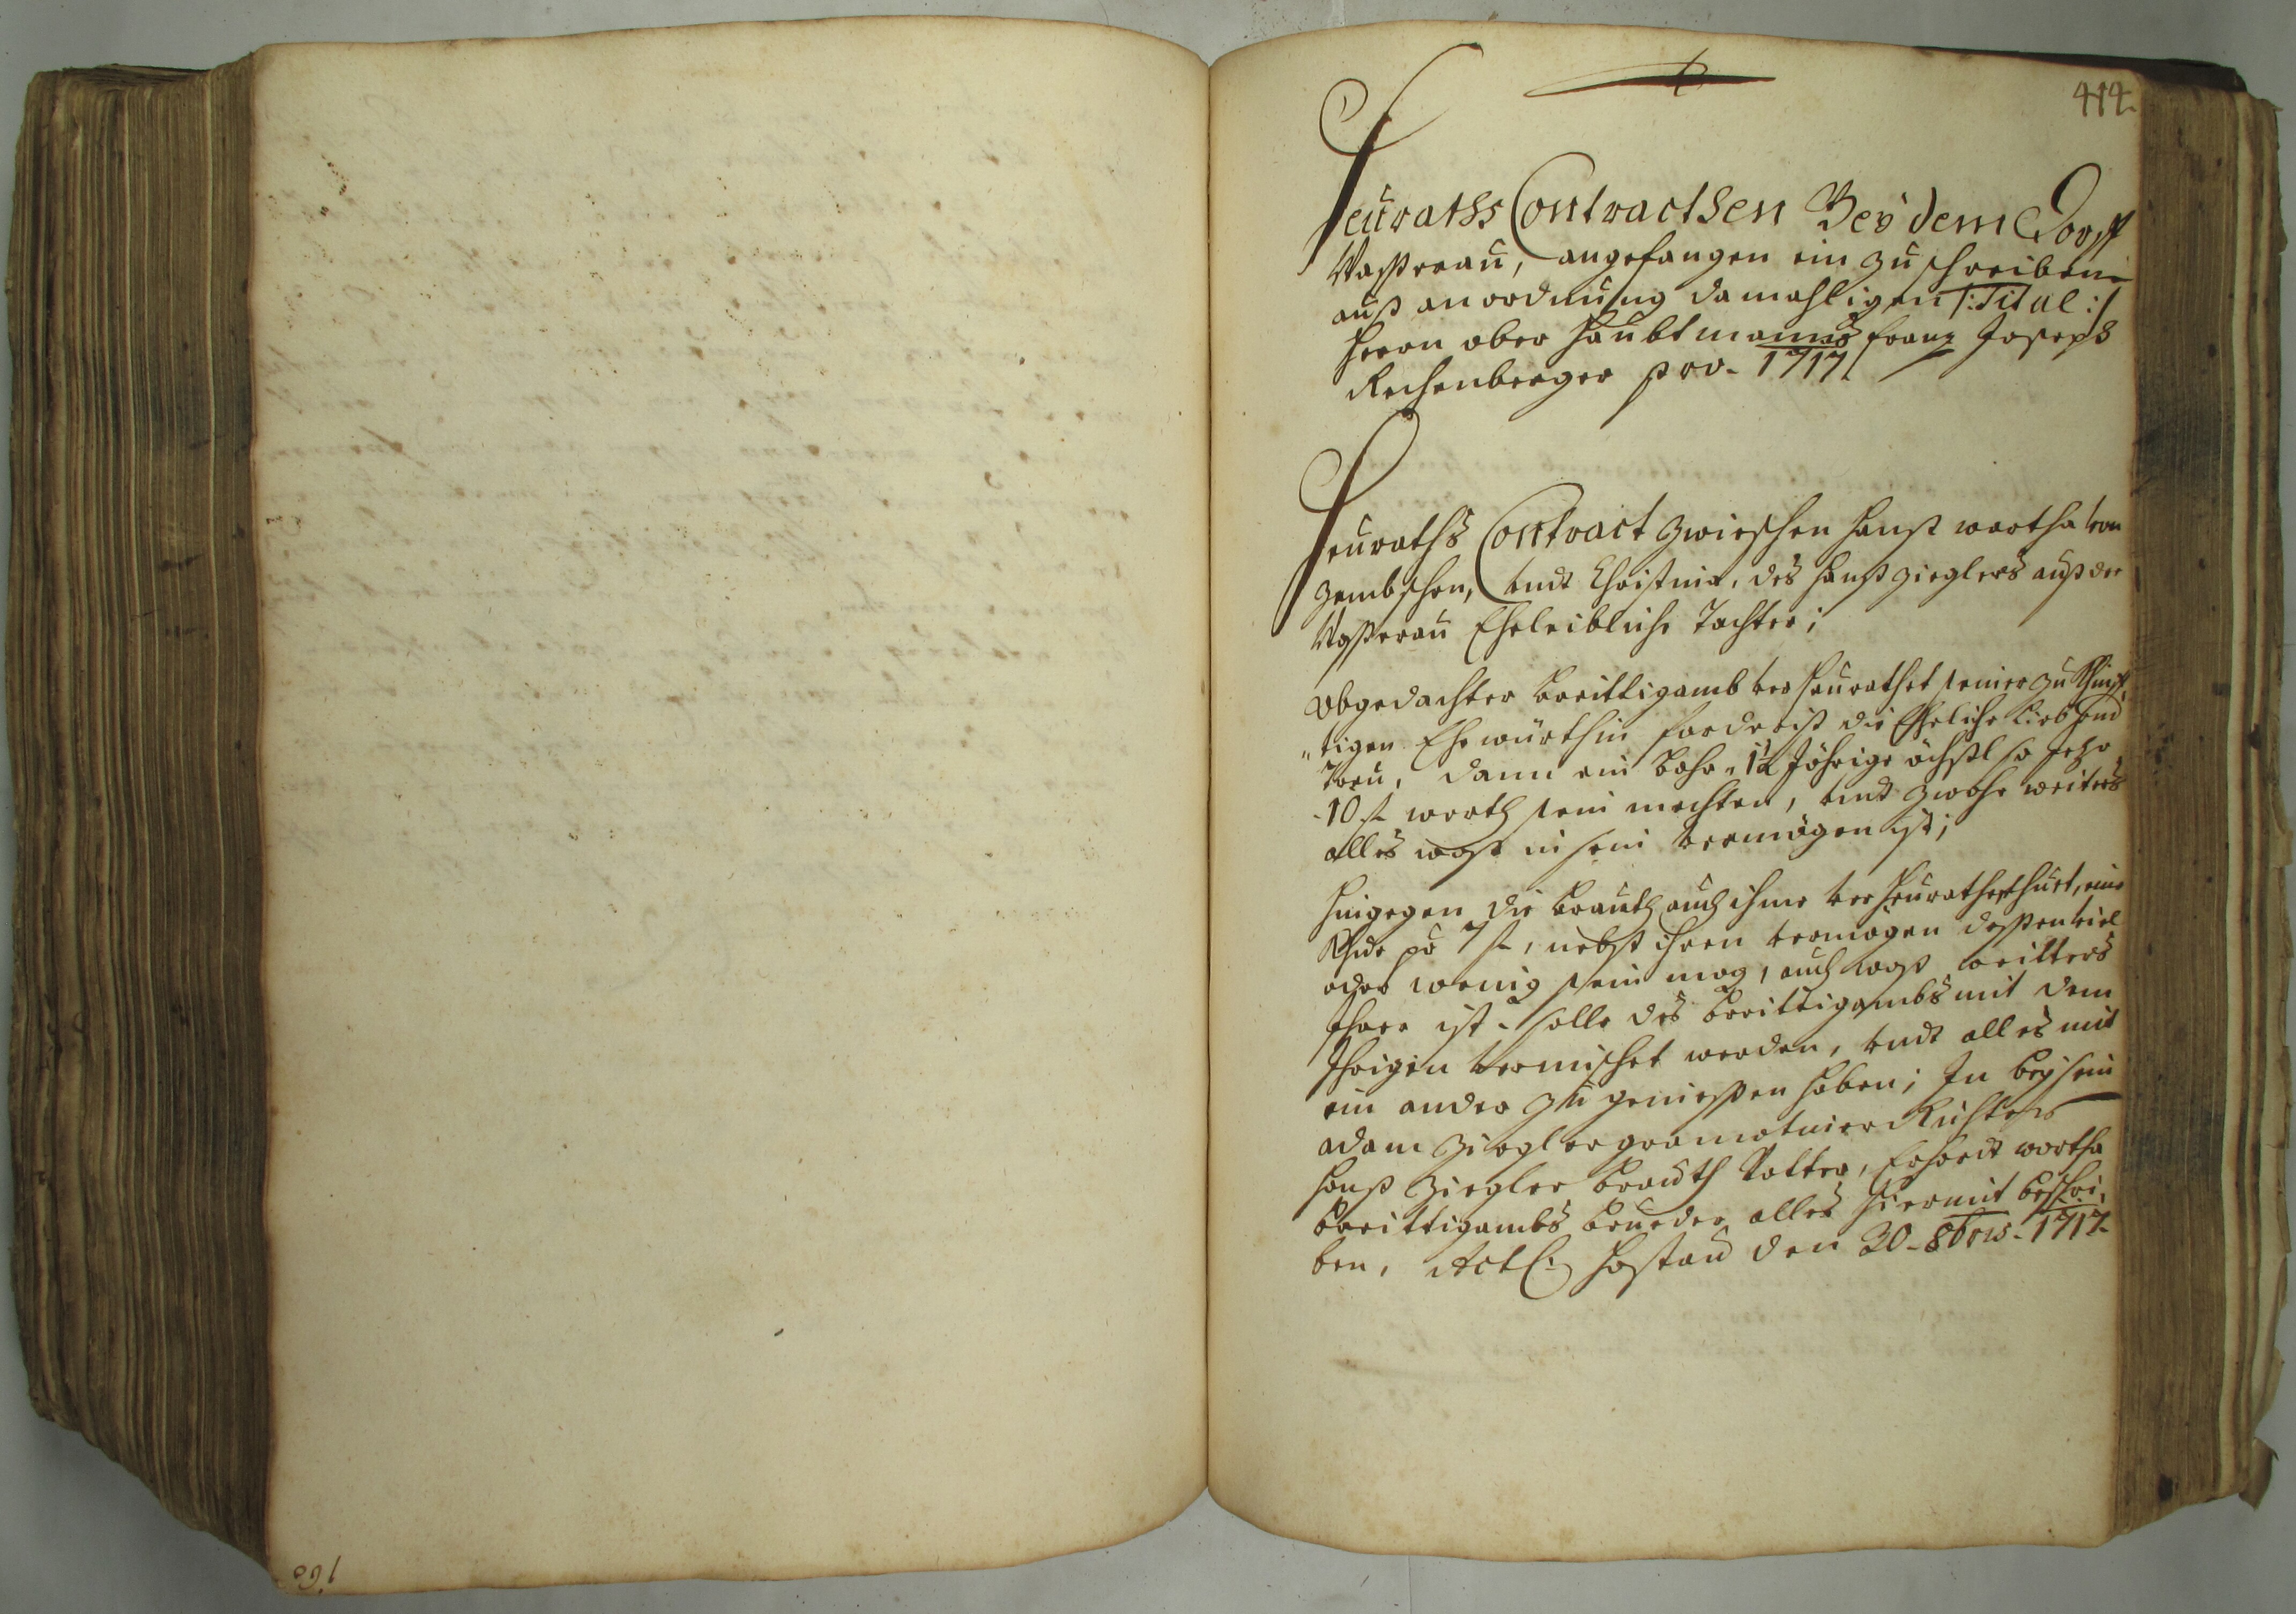 414
Heüraths Contracthen Beÿ dem Dorff
Waßerau, angefangen ein zu schreiben
auß anordnung damahligen /: Titul :/
Herrn ober Haubtmanns Frantz Joseph
Rechenberger pro. 1717
Heuraths Contract zwieschen Hanß wartha von
Zembschen, undt Christina, des Hanß Zieglers auß der
Waßerau Eheleibliche Tochter;
Obgedachter breittigamb ver Heurathet seiner zu Khünf,
„tigen Ehewürthin forderist die Eheliche Lieb und
Treu, dann ein 1½ Jöhrige öchßl so
10 f werth sein mechten, undt weiters
alles waß in sein vermögen ist;
Hingegen die brauth auch ihme ver Heurathen thuet, eine
Khue pr 7 f, nebst ihren vermögen deßen viel
oder wenig sein mag, auch waß weitters
Ihrer ist. solle des breittigambs mit dem
Ihrigen vermischet werden, undt alles mit
ein ander zu genießen haben; In beysein
adam Ziegler Richters
Hanß Ziegler brauth Vatter, Erhardt wartha
breittigambs brueder alles hiermit beschri,
ben, Act: Hostau den 30. 8bris. 1717.
160